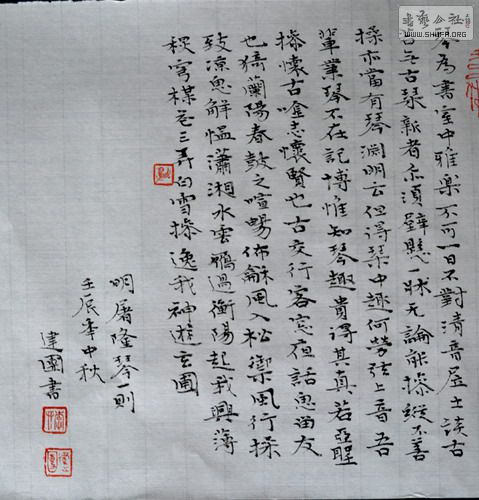 书艺公社
WWW.SHUFA.ORG
琴為書室中雅樂不可一日不對清音居士談古
無古琹新者亦須壁懸一牀无論能操縱不善
操亦當有琴淵明云但得琴中趣何勞弦上音吾
輩業琴不在記博惟知琴趣貴得其真若亞聖
操懷古唫志懷賢也古交行客窓夜話思尚友
也猗蘭陽春鼓之喧暢佈龢風入松御風行操
致凉思解慍瀟湘水雲鴈過衡陽起我興薄
秋穹楳花三弄白雪操逸我神遊玄圃
明屠隆琴一則
壬辰年中秋
建國書